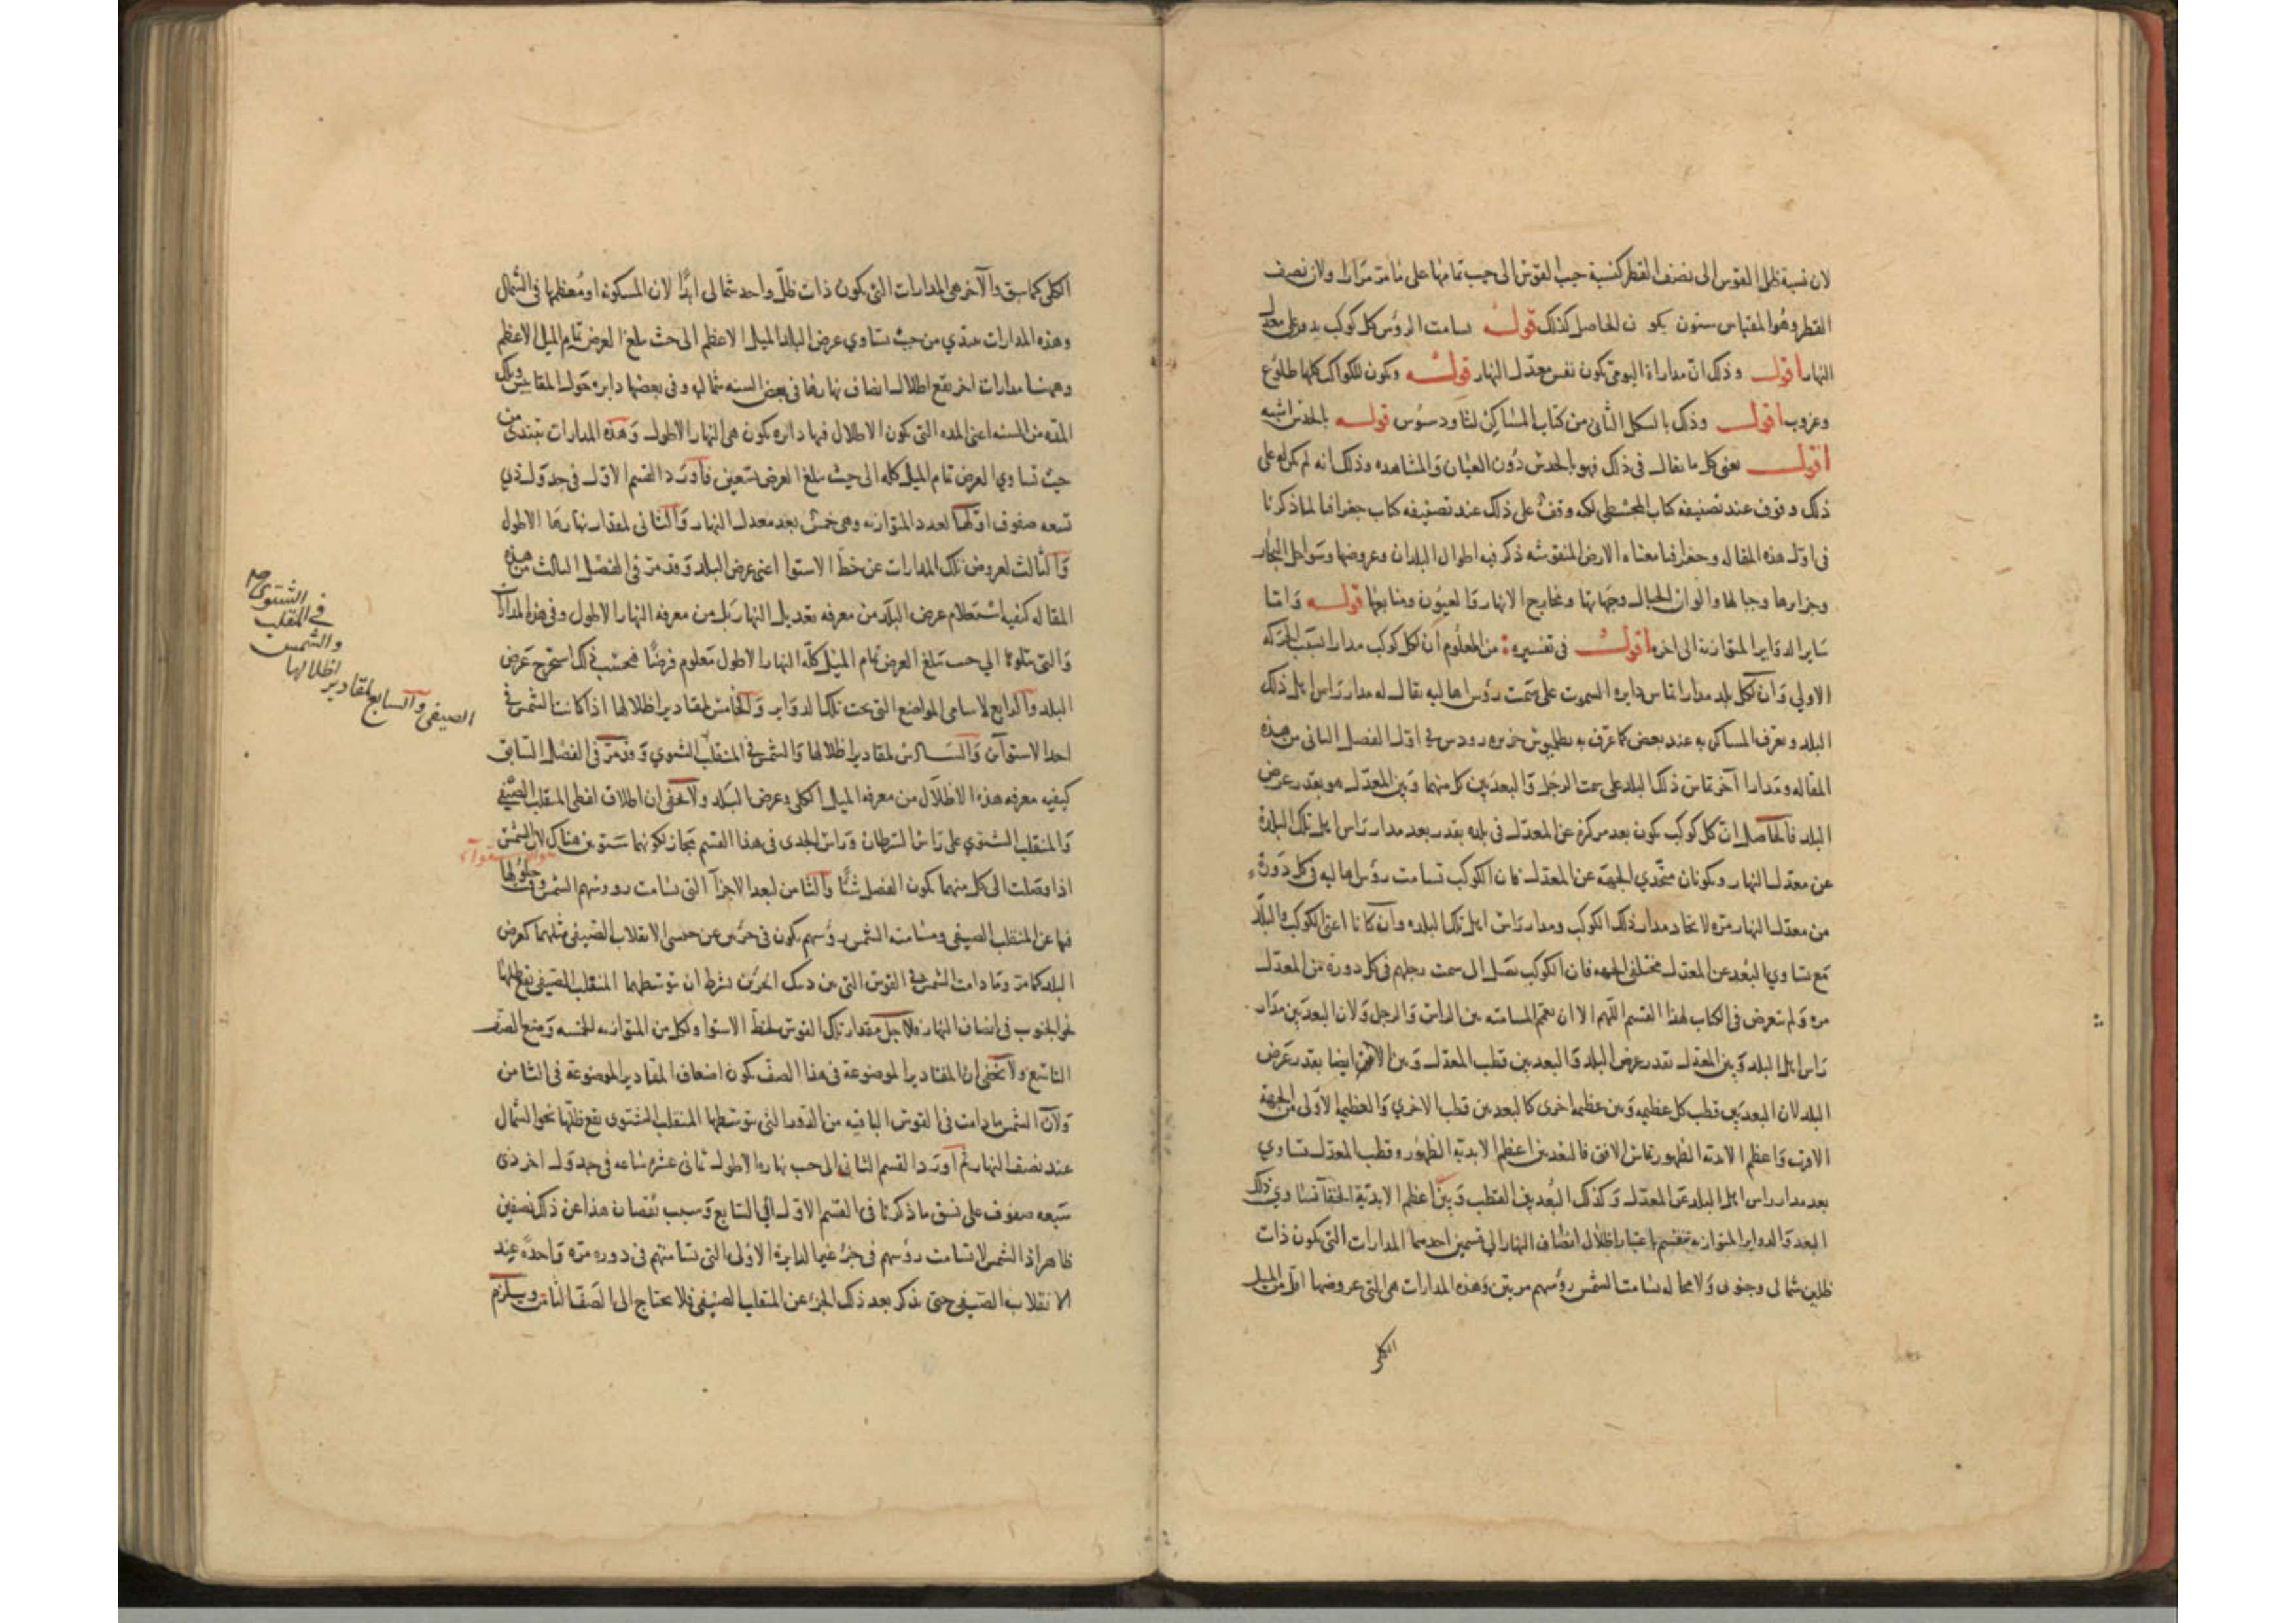 لان نسبة ظل القوس الى نصف القطر كنسبة جيب القوس الى جيب تمامها على ما مر مرارا ولان نصف
القطر وهو المقياس ستون يكون الحاصل كذلك قوله يسامت الرؤس كل كوكب يدور على معدل
النهار اقول وذلك ان مدارات اليومى تكون نفس معدل النهار قوله وتكون للكواكب كلها طلوع
وغروب اقول وذلك بالشكل الثانى من كتاب المساكن لثاودسوس قوله بالحدس اشبه
اقول يعنى كل ما يقال فى ذلك فهو بالحدس دون العيان والمشاهده وذلك انه لم يكن له على
ذلك وقوف عند تصنيفه كتاب المجسطى لكنه وقف على ذلك عند تصنيفه كتاب جغرافيا لما ذكرنا
فى اول هذه المقاله وجغرافيا معناه الارض المنقوشه ذكر فيه اطوال البلدان وعروضها وسواحل البحار
وجزايرها وجبالها والوان الجبال وجهاتها ومخارج الانهار والعيون ومنابعها قوله واما
ساير الدواير المتوازية الى اخره اقول فى تفسيره من المعلوم ان لكل كوكب مدارا بسبب الحركه
الاولى وان لكل بلد مدارا تماس دايره السموت على سمت رؤس اهاليه يقال له مدار راس اهل ذلك
البلد ويعرف المساكن به عند بعض كما عرف به بطلميوس جزيره رودس فى اول الفصل الثانى من هذه
المقاله ومدارا آخر تماس ذلك البلد على سمت الرجل والبعد بين كل منهما وبين المعدل هو بقدر عرض
البلد فالحاصل ان كل كوكب يكون بعد مركزه عن المعدل فى بلده بقدر بعد مدار راس اهل تلك البلدة
عن معدل النهار ويكونان متحدي الجهة عن المعدل فان الكوكب تسامت رؤس اهاليه فى كل دورة
من معدل النهار مره لاتحاد مدار ذلك الكوكب ومدار راس اهل تلك البلده وان كانا اعنى الكوكب والبلد
مع تساوي البعد عن المعدل مختلفى الجهه فان الكوكب يصل الى سمت رجلهم فى كل دورة من المعدل
مره ولم يتعرض فى الكتاب لهذا القسم اللهم الا ان يعم المسامته بين الراس والرجل ولان البعد بين مدار
راس اهل البلد وبين المعدل بقدر عرض البلد والبعد بين قطب المعدل وبين الافق ايضا بقدر عرض
البلد لان البعد بين قطب كل عظيمه وبين عظيمه اخرى كالبعد بين قطب الاخري والعظيمه الاولى من الجهة
الاقرب واعظم الابدية الظهور يماس الافق فالبعد بين اعظم الابدية الظهور وقطب المعدل تساوي
بعد مدار راس اهل البلد عن المعدل وكذلك البعد بين القطب وبين اعظم الابدية الخفا فتساوي ذلك
البعد والدواير المتوازيه تنقسم باعتبار اظلال انصاف النهار الى قسمين احدهما المدارات التى تكون ذات
ظلين شمالى وجنوبى ولا محاله تسامت الشمس رؤسهم مرتين وهذه المدارات هى التى عروضها اقل من الميل
الكلى
الكلى كما سبق والآخر هى المدارات التى تكون ذات ظل واحد شمالى ابدا لان المسكونه او معظمها فى الشمال
وهذه المدارات تبتدي من حيث تساوي عرض البلد الميل الاعظم الى حيث يبلغ العرض تمام الميل الاعظم
وههنا مدارات اخر يقع اظلال انصاف نهارها فى بعض السنه شماليه وفى بعضها دايره حول المقاييس وتلك
المده من السنه اعنى المده التى تكون الاظلال فيها دائره تكون هى النهار الاطول وهذه المدارات تبتدى من
حيث تساوي العرض تمام الميل كله الى حيث يبلغ العرض تسعين فاورد القسم الاول فى جدول ذي
تسعه صفوف اولها لعدد المتوازيه وهى خمس بعد معدل النهار والثانى لمقدار نهارها الاطول
والثالث لعروض تلك المدارات عن خط الاستوا اعنى عرض البلد وقد مر فى الفصل الثالث من هذه
المقاله كيفيه استعلام عرض البلد من معرفه تعديل النهار بل من معرفه النهار الاطول وفى هذه المدارات
والتى تتلوها الى حيث يبلغ العرض تمام الميل كله النهار الاطول معلوم فرضا فبحسب ذلك استخرج عرض
البلد والرابع لاسامى المواضع التى تحت تلك الدواير والخامس لمقادير اظلالها اذا كانت الشمس فى
احد الاستوآين والسادس لمقادير اظلالها والشمس فى المنقلب الشتوي وقد مر فى الفصل السابق
كيفيه معرفه هذه الاظلال من معرفه الميل الكلى وعرض البلد ولا يخفى ان اطلاق لفظى المنقلب الصيفى
والمنقلب الشتوي على راس السرطان وراس الجدى فى هذا القسم مجاز لكونهما شتوين هناك لان الشمس
اذا وصلت الى كل منهما يكون الفصل شتاء والثامن لبعد الاجزآ التى تسامت رووسهم الشمس وقت حلولها
فيها عن المنقلب الصيفى ومسامته الشمس رؤسهم يكون فى جزءين عن جنبى الانقلاب الصيفى ميلهما كعرض
البلد كما مر وما دامت الشمس فى القوس التى بين ذينك الجزءين بشرط ان يتوسطهما المنقلب الصيفى يقع ظلها
نحو الجنوب فى انصاف النهار فلاجل مقدار تلك القوس لخط الاستوا ولكل من المتوازيه الخمسه وضع الصف
التاسع ولا يخفى ان المقادير الموضوعة فى هذا الصف تكون اضعاف المقادير الموضوعة فى الثامن
ولان الشمس ما دامت فى القوس الباقيه من الدور التى يتوسطها المنقلب الشتوى يقع ظلها نحو الشمال
عند نصف النهار ثم اورد القسم الثانى الى حيث نهاره الاطول ثمانى عشره ساعه فى جدول اخر ذى
سبعه صفوف على نسق ما ذكرنا فى القسم الاول الى السابع وسبب نقصان هذا عن ذلك بصفين
ظاهر اذ الشمس لا تسامت رؤسهم فى جزء غير الدايرة الاولى التى تسامتهم فى دوره مره واحدة عند
الانقلاب الصيفى حتى يذكر بعد ذلك الجزء عن المنقلب الصيفى فلا يحتاج الى الصف الثامن ويلزم
فى المنقلب
الشتوى
والشمس
لمقادير اظلالها
الصيفى والسابع